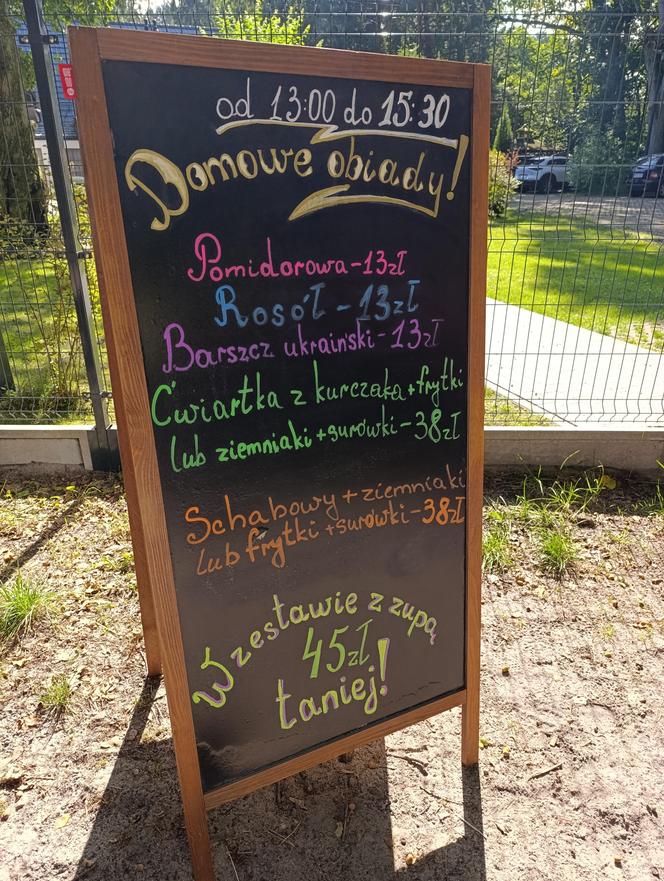 od 13:00 do 15:30
Domowe obiady!
Pomidorowa - 13zł
Rosół - 13zł
Barszcz ukraiński - 13zł
Ćwiartka z kurczaka + frytki
lub ziemniaki + surówki - 38zł
Schabowy + ziemniaki
lub frytki + surówki - 38zł
W zestawie z zupą
45zł
taniej!